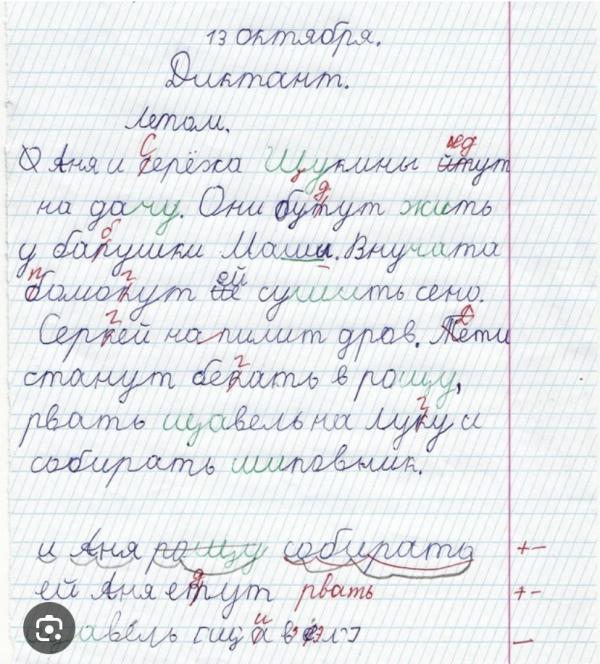 13 октября.
Диктант.
Летом.
Аня и серёжа Щукины йтут
на дачу. Они бутут жить
у бапушки Маши. Внучата
бомокут ей сушить сено.
Серкей напилит дров. Тети
станут бекать в рощу,
рвать щавель на луку и
собирать шиповник.
и Аня рощу собирать +-
ей Аня рвать +-
щавель -